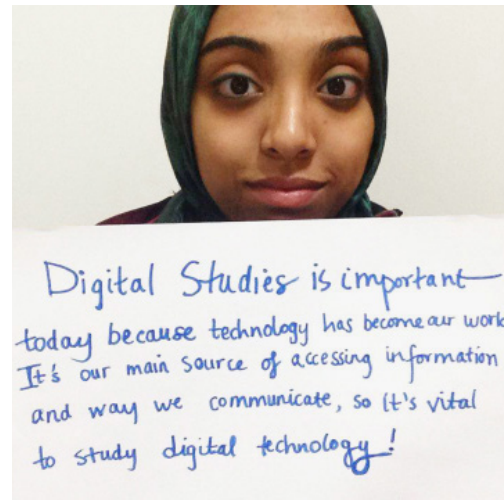 Digital Studies is important
today because technology has become our work
It's our main source of accessing information
and way we communicate, so it's vital
to study digital technology!